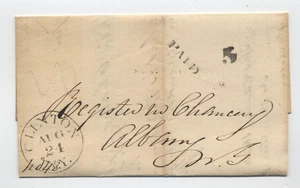 PAID 5
CLINTON
AUG
24
N.Y.
Register in Chancery
Albany
N.Y